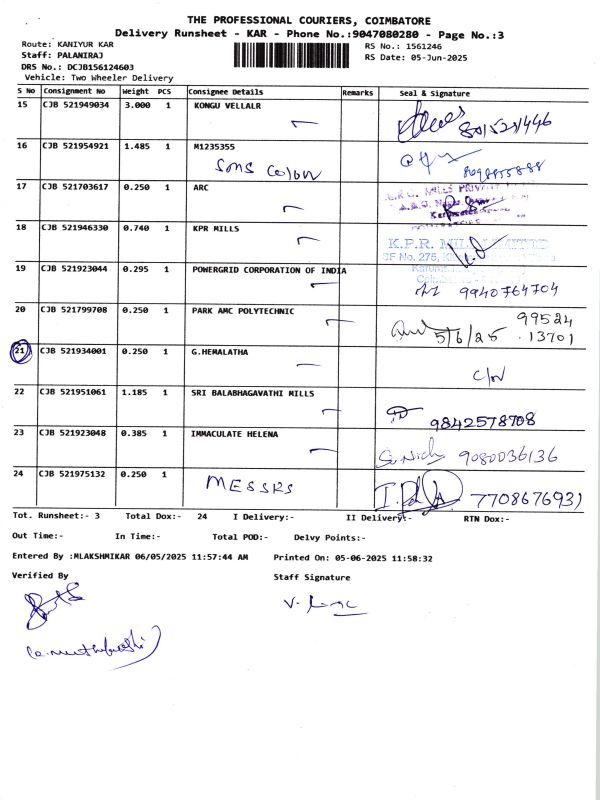 THE PROFESSIONAL COURIERS, COIMBATORE
Delivery Runsheet - KAR - Phone No.:9047080280 - Page No.:3
Route: KANIYUR KAR
RS No.: 1561246
Staff: PALANIRAJ
RS Date: 05-Jun-2025
DRS No.: DCJB156124603
Vehicle: Two Wheeler Delivery
S No Consignment No Weight PCS Consignee Details Remarks Seal & Signature
15 CJB 521949034 3.000 1 KONGU VELLALR
16 CJB 521954921 1.485 1 M1235355
17 CJB 521703617 0.250 1 ARC
18 CJB 521946330 0.740 1 KPR MILLS
K.P.R. MILL LIMITED
SF No. 276,
19 CJB 521923044 0.295 1 POWERGRID CORPORATION OF INDIA
9940764704
20 CJB 521799708 0.250 1 PARK AMC POLYTECHNIC
99524
5/6/25 13701
21 CJB 521934001 0.250 1 G.HEMALATHA
22 CJB 521951061 1.185 1 SRI BALABHAGAVATHI MILLS
9842578708
23 CJB 521923048 0.385 1 IMMACULATE HELENA
9080036136
24 CJB 521975132 0.250 1 MESSRS
7708676931
Tot. Runsheet:- 3 Total Dox:- 24 I Delivery:- II Delivery:- RTN Dox:-
Out Time:- In Time:- Total POD:- Delvy Points:-
Entered By :MLAKSHMIKAR 06/05/2025 11:57:44 AM Printed On: 05-06-2025 11:58:32
Verified By Staff Signature